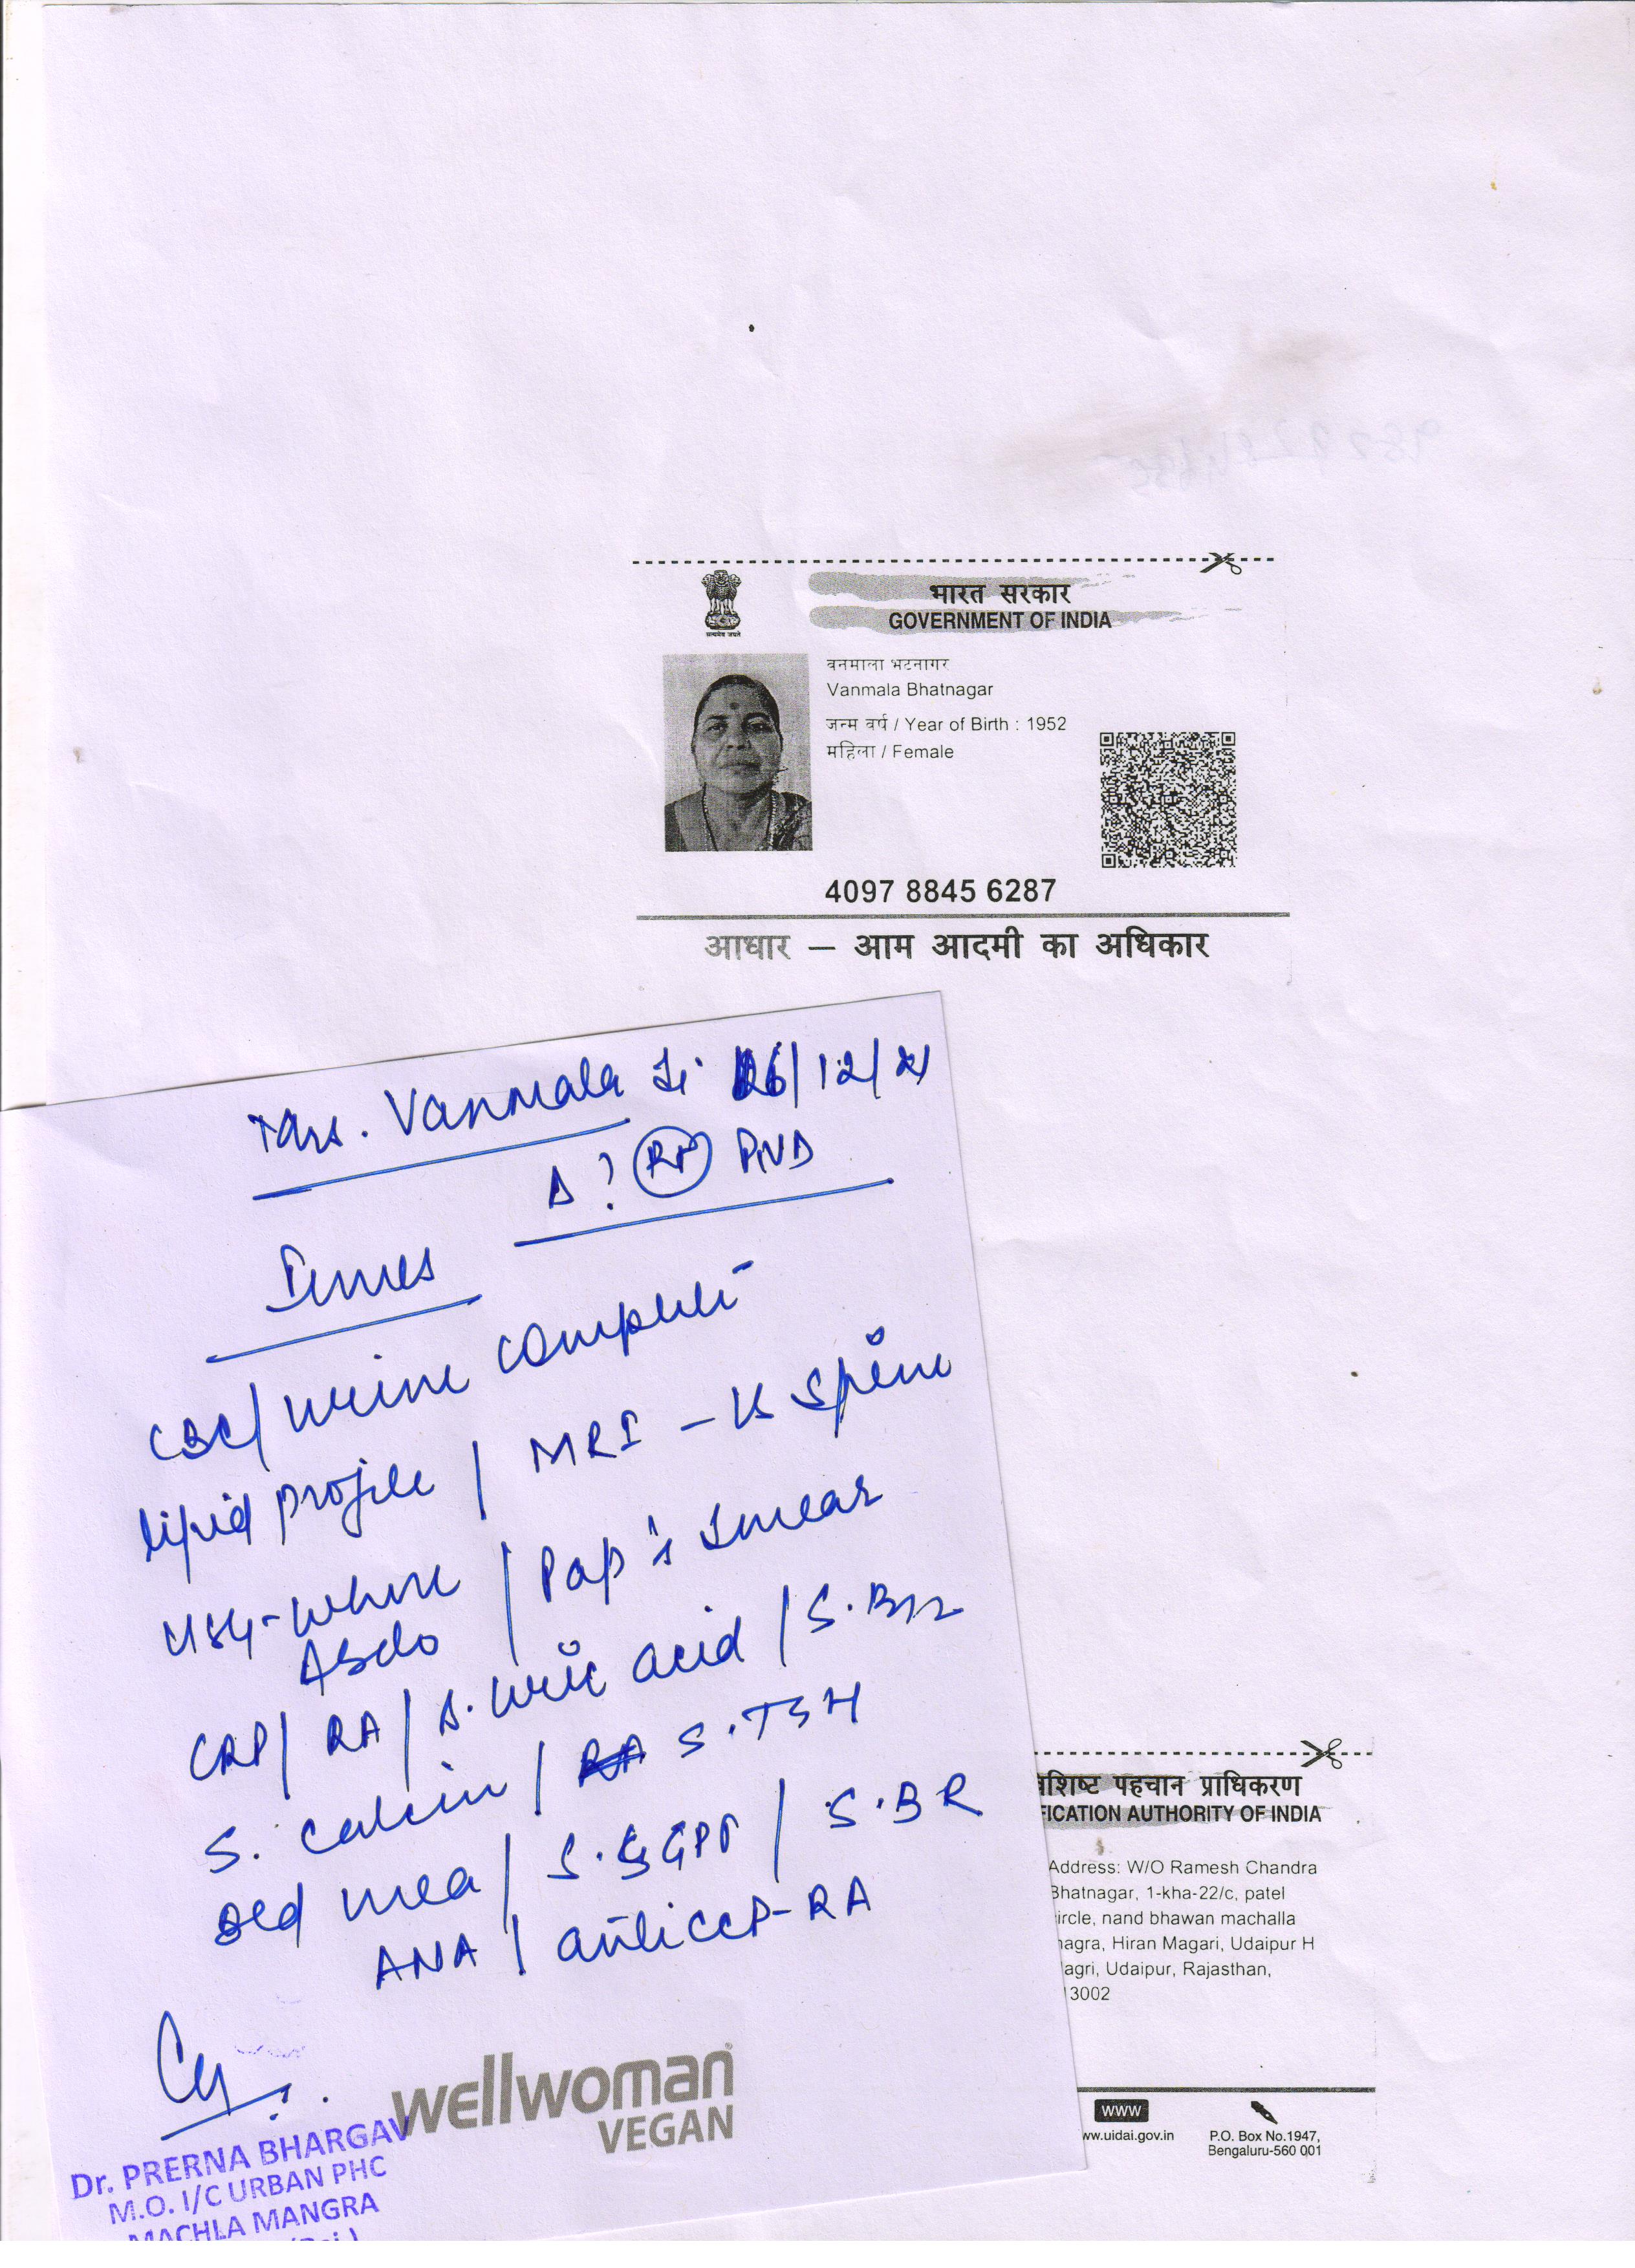 भारत सरकार
GOVERNMENT OF INDIA
सत्यमेव जयते
वनमाला भटनागर
Vanmala Bhatnagar
जन्म वर्ष / Year of Birth : 1952
महिला / Female
4097 8845 6287
आधार – आम आदमी का अधिकार
Mrs. Vanmala Ji 26/12/21
Δ ? PIVD
CBC/ urine complete
lipid profile / MRI - LS spine
USG-whole / Pap's smear
Abdo
CRP/ RA/ S. uric acid / S.B12
S. calcium / S.TSH
Bld urea / S.SGPT / S.BR
ANA / anti CCP-RA
wellwoman
VEGAN
Dr. PRERNA BHARGAV
M.O. I/C URBAN PHC
MACHLA MANGRA
(Raj.)
विशिष्ट पहचान प्राधिकरण
FICATION AUTHORITY OF INDIA
Address: W/O Ramesh Chandra
Bhatnagar, 1-kha-22/c, patel
ircle, nand bhawan machalla
nagra, Hiran Magari, Udaipur H
agri, Udaipur, Rajasthan,
13002
www
ww.uidai.gov.in
P.O. Box No.1947,
Bengaluru-560 001